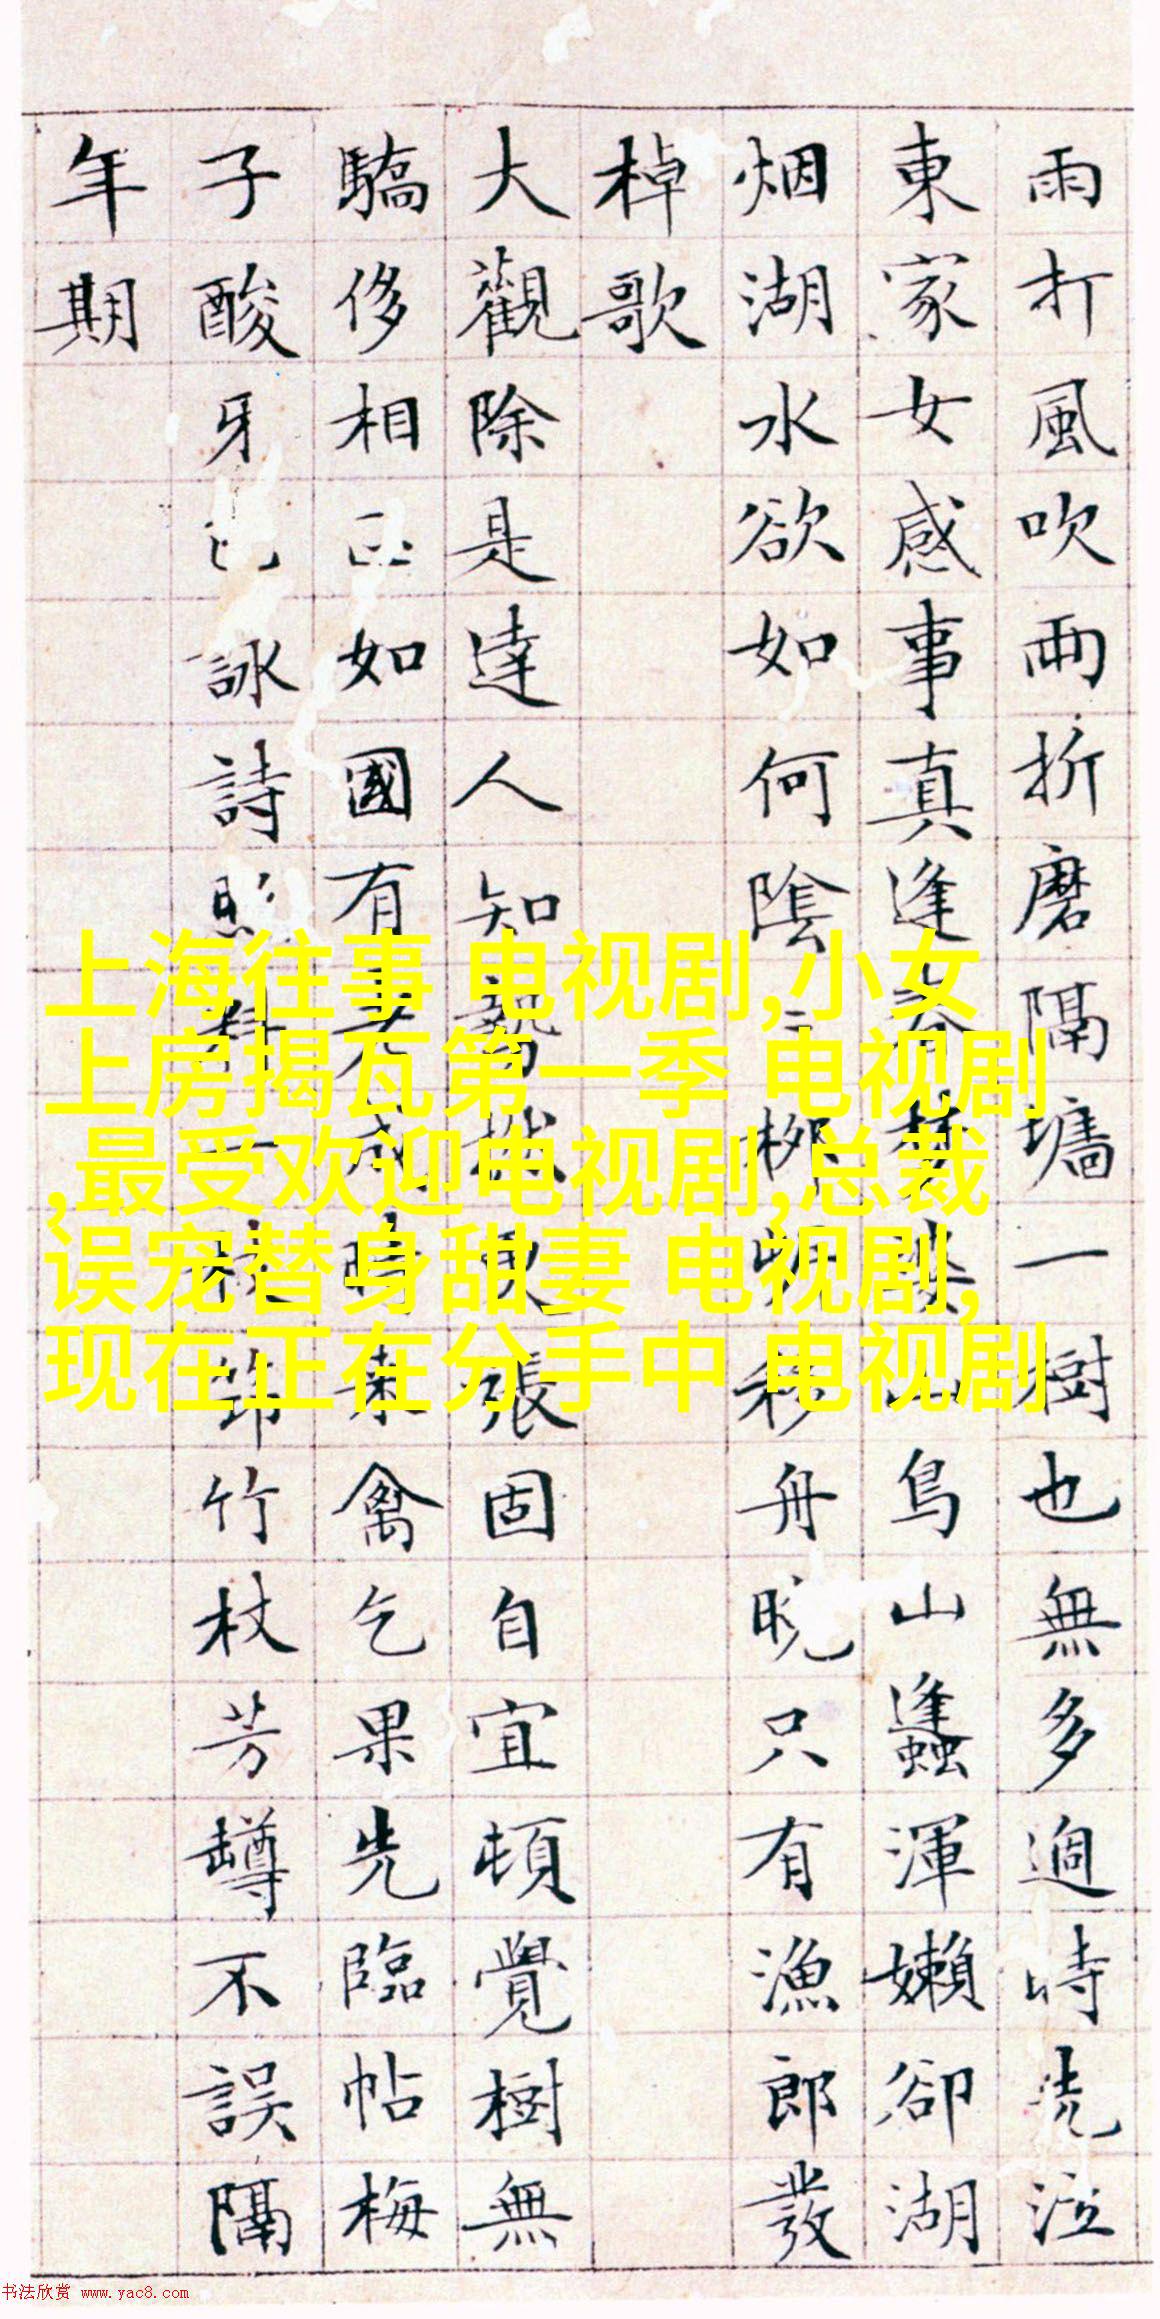 雨打風吹兩折磨隔墻一樹也無多過時洗泣
東家女感事真逢春夢山鳥山蠭渾嬾卻湖
烟湖水欲如何陰柳移舟晚只有漁郎發
棹歌
大觀除是達人知張固自宜頓覺樹無
驕侈相如國有老成禽乞果先臨帖梅
子酸牙詠詩竹杖芳罇不誤隔
年期
上海往事 电视剧,小女
上房揭瓦第一季 电视剧
,最受欢迎电视剧,总裁
误宠替身甜妻 电视剧,
现在正在分手中 电视剧
书法欣赏 www.yac8.com